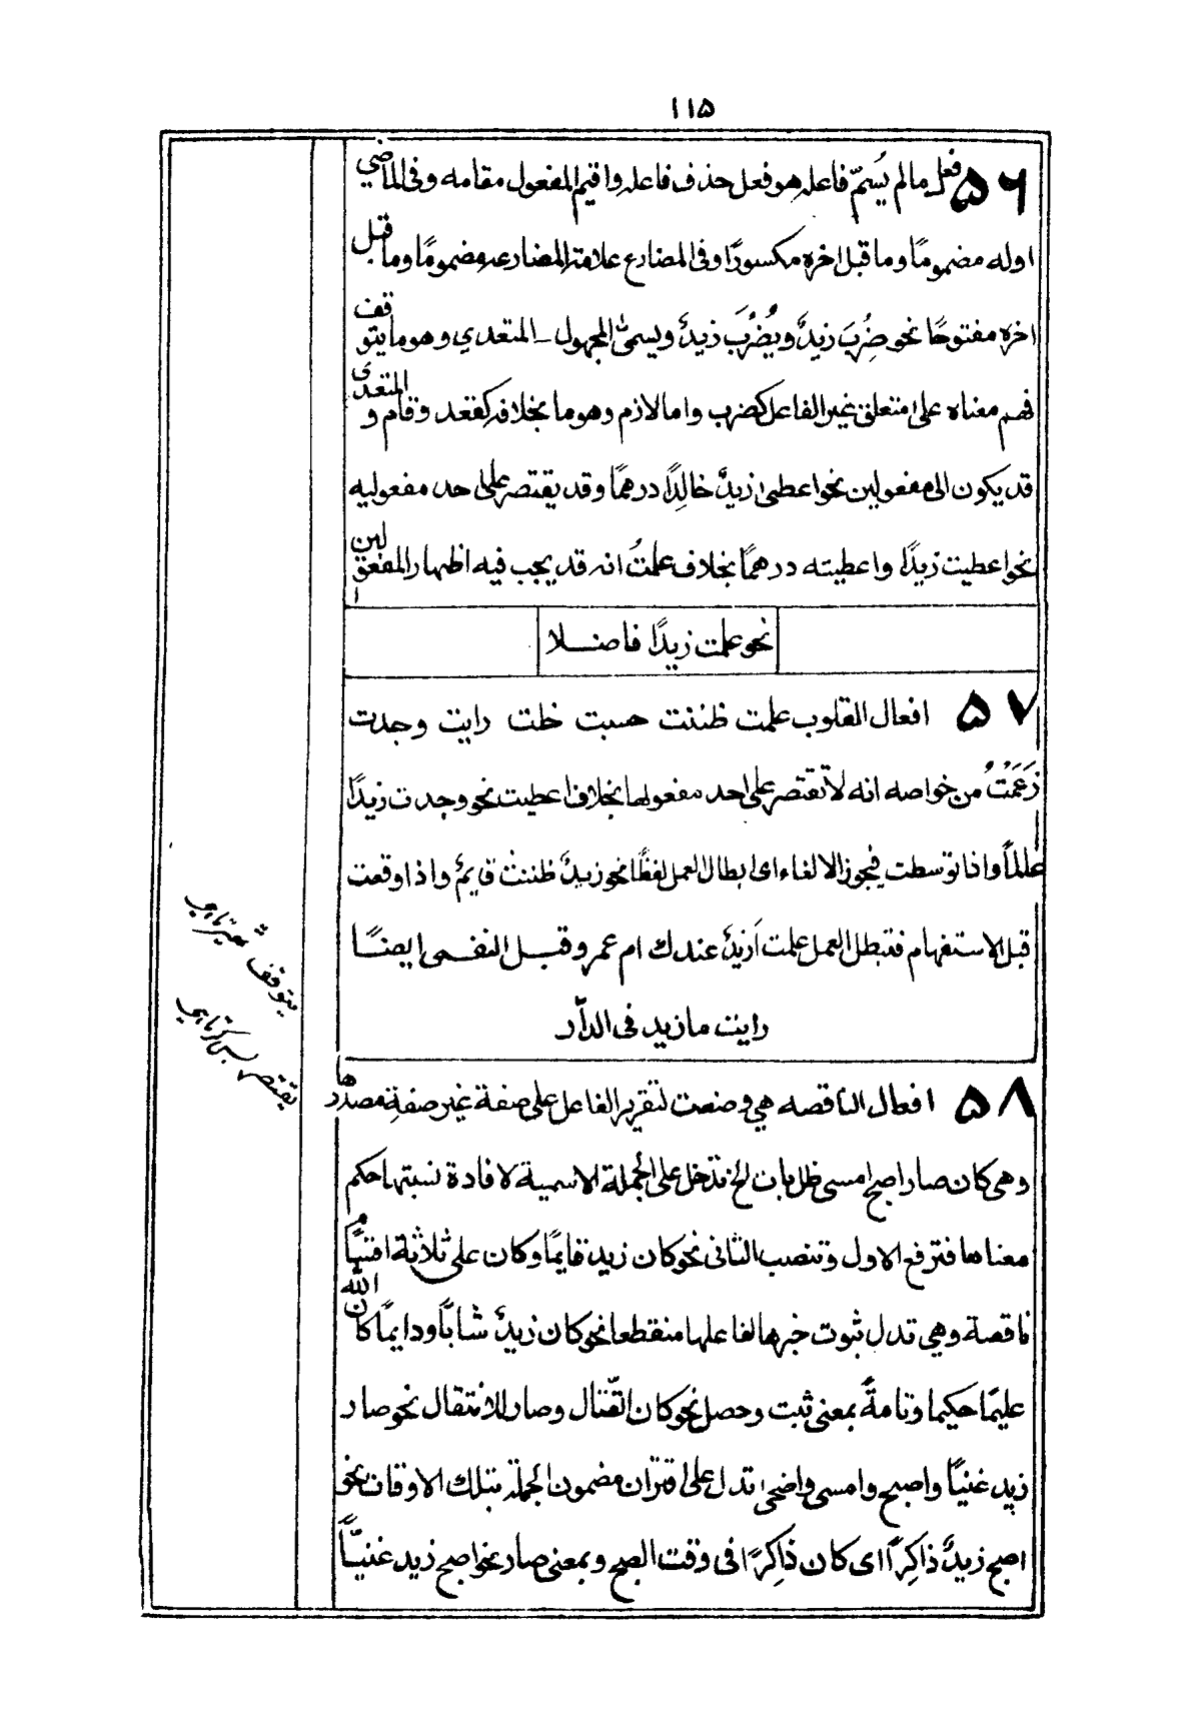 ۱۱۵
۵۶ فعل مالم يُسمّ فاعله هو فعل حذف فاعله واقيم المفعول مقامه وفى الماضي
اوله مضمومًا وما قبل اخره مكسورًا وفى المضارع علامة المضارعه مضمومًا وما قبل
اخره مفتوحًا نحو ضُرِبَ زيدٌ ويُضْرَبُ زيدٌ ويسمىّ المجهول ـ المتعدي وهو ما يتوقف
فهم معناه على متعلق غير الفاعل كضرب واما لازم وهو ما بخلافه كقعد وقام و المتعدى
قد يكون الى مفعولين نحو اعطى زيدٌ خالِدًا درهمًا وقد يقتصر على احد مفعوليه
نحو اعطيت زيدًا واعطيته درهمًا بخلاف علمتُ انه قد يجب فيه اظهار المفعولين
نحو علمت زيدًا فاضلا
۵۷ افعال القلوب علمت ظننت حسبت خلت رايت وجدت
زَعَمْتُ من خواصه انه لا تقتصر على احد مفعولها بخلاف اعطيت نحو وجدت زيدًا
عالمًا واذا توسطت فيجوز الالغاء اى ابطال العمل لفظًا نحو زيدٌ ظننت قايمٌ واذا وقعت
قبل الاستفهام فتبطل العمل علمت اَزيدٌ عندك ام عمر وقبل النفى ايضًا
رايت ما زيد فى الدّار
۵۸ افعال الناقصه هي وضعت لتقرير الفاعل على صفة غير صفةِ مصدرها
وهى كان صار اصبح امسى ظل بات الخ تدخل على الجملة الاسمية لافادة نسبتها حكم
معناها فترفع الاول وتنصب الثانى نحو كان زيد قايمًا وكان على ثلاثة اقسامٍ
ناقصة وهي تدل ثبوت خبرها لفاعلها منقطعا نحو كان زيدٌ شابًّا ودايمًا كان الله
عليمًا حكيما وتامةً بمعنى ثبت وحصل نحو كان القتال وصار للانتقال نحو صار
زيد غنيًا واصبح وامسى واضحى تدل على اقتران مضمون الجملة بتلك الاوقات نحو
اصبح زيدٌ ذاكِرًا اى كان ذاكِرًا فى وقت الصبح وبمعنى صار نحو اصبح زيد غنيًّا
يتوقف
يقتصر بس كرتا ہے